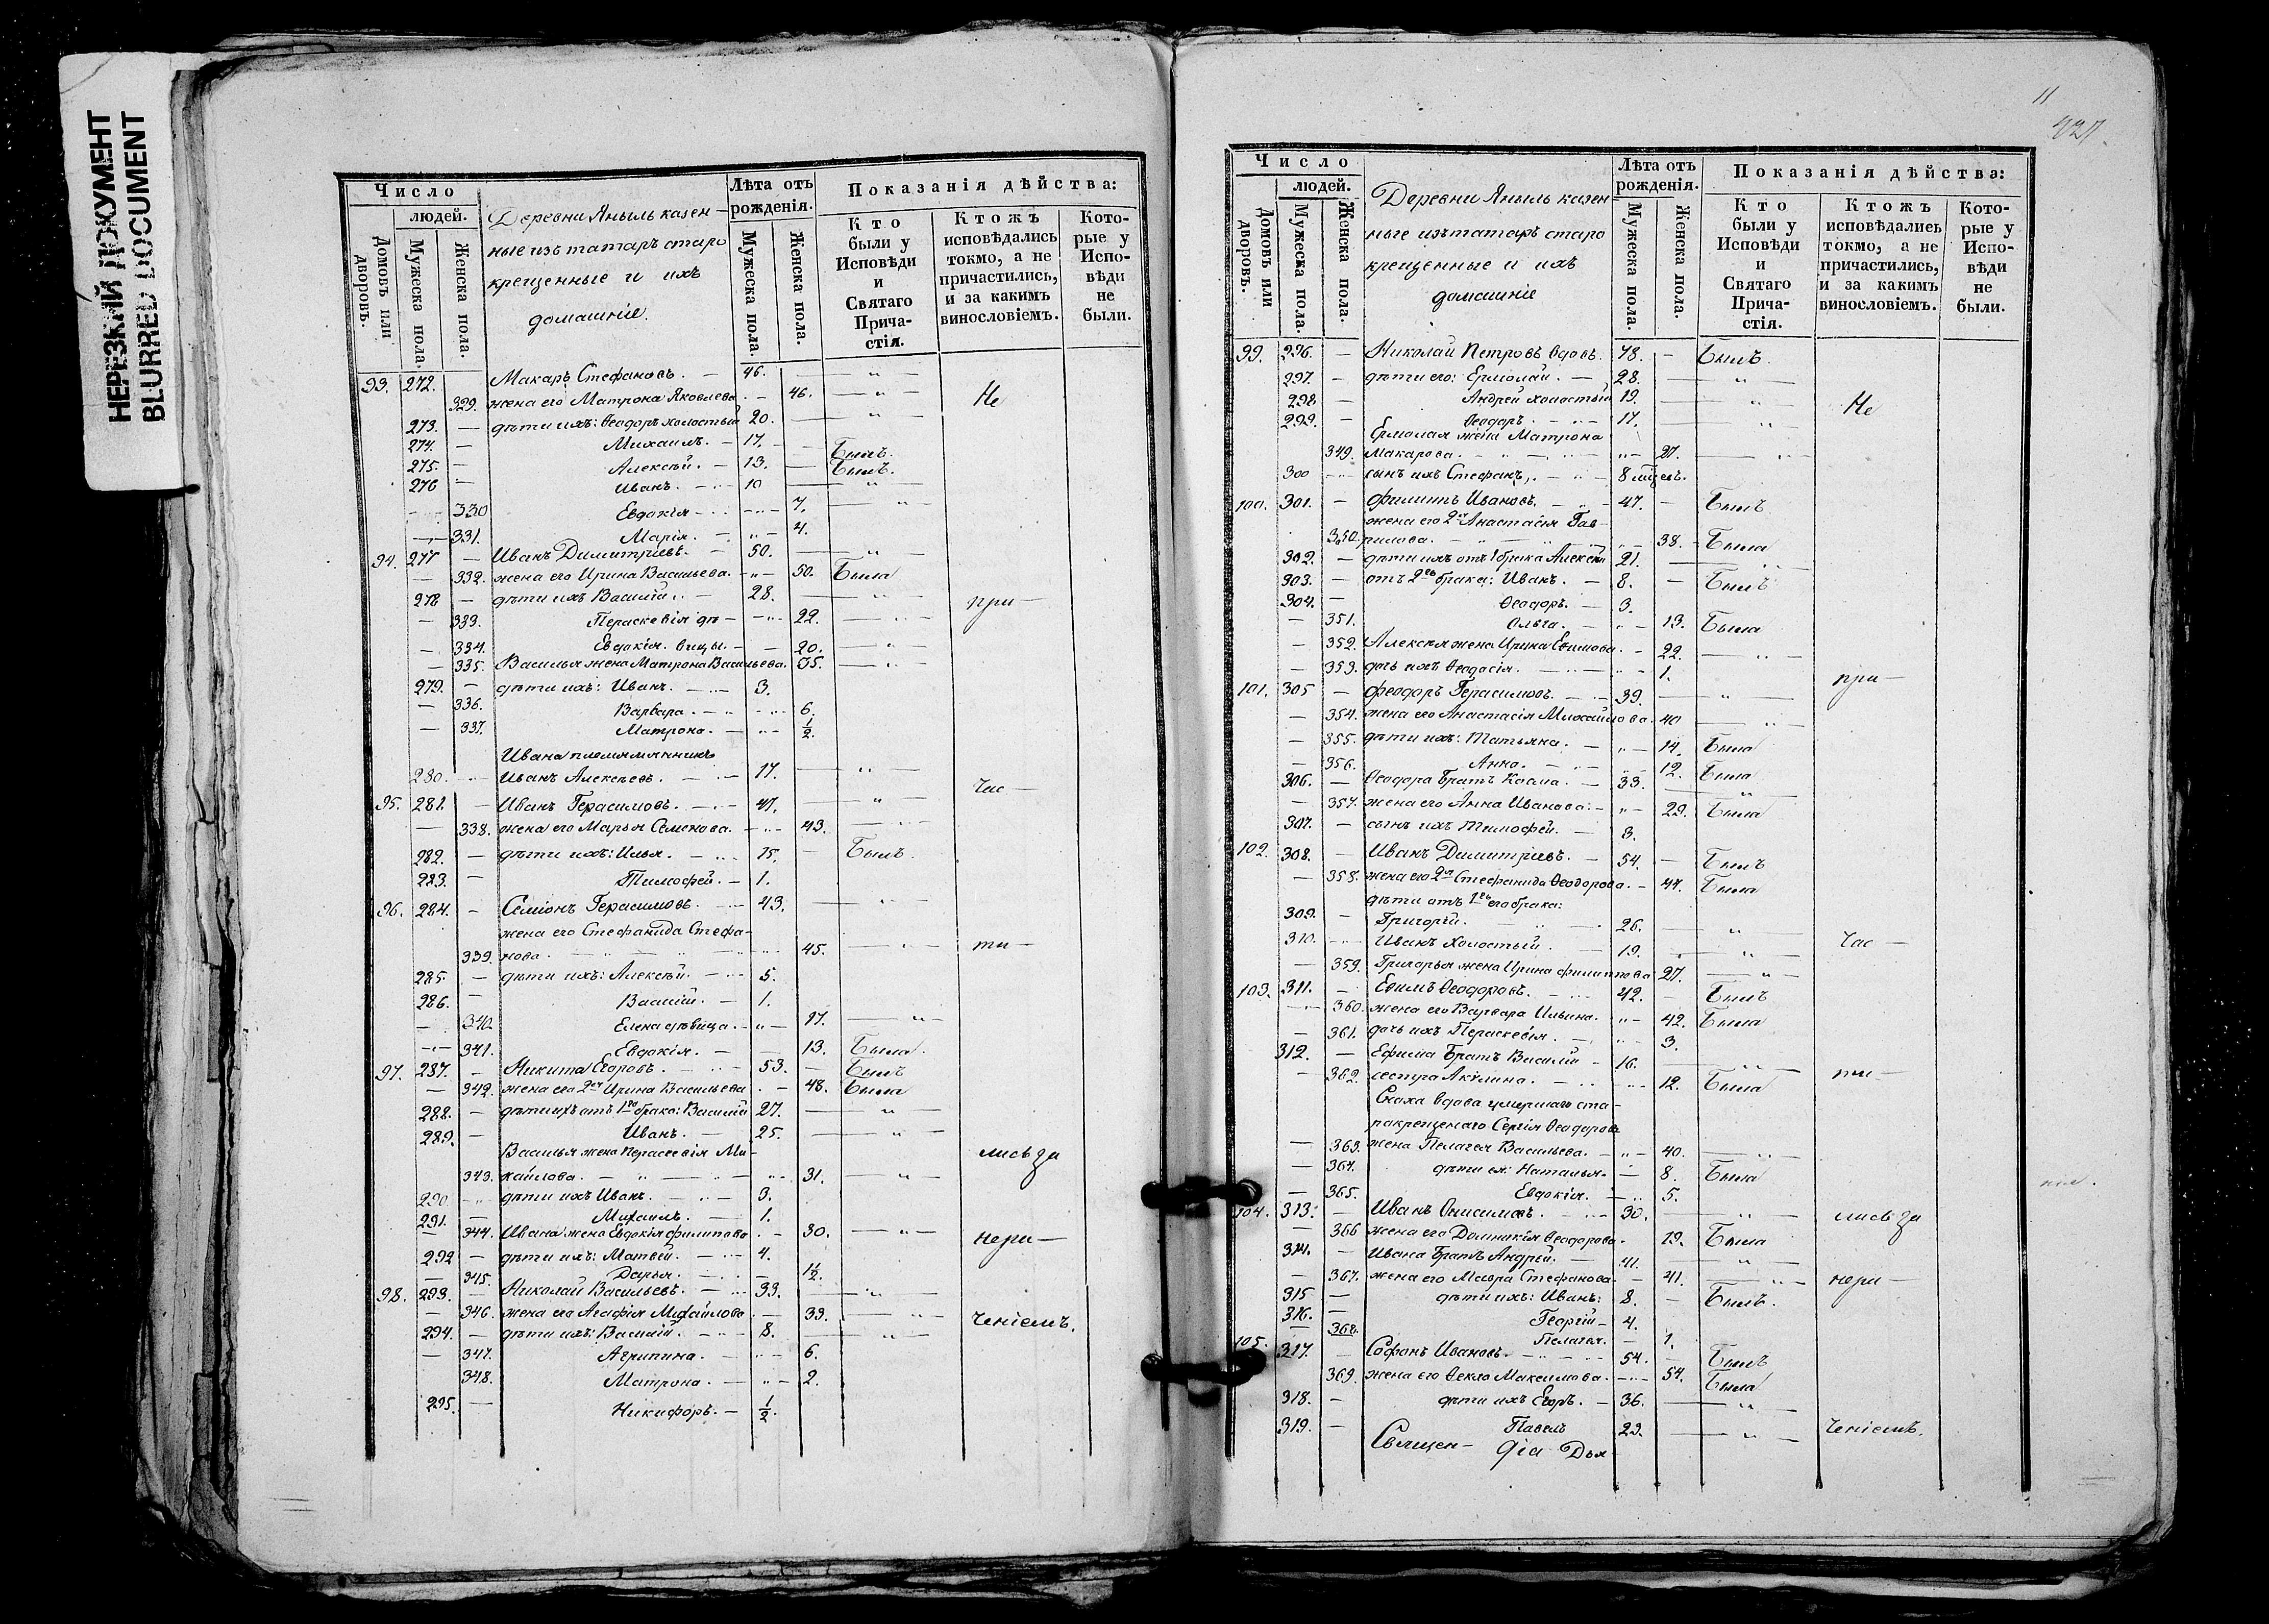 НЕРЕЗКИЙ ДОКУМЕНТ
BLURRED DOCUMENT
Число
людей.
Домовъ или дворовъ.
Мужеска пола.
Женска пола.
Деревни Яныль казен-
ные изъ татаръ старо
крещенные и ихъ
домашніе.
Лѣта отъ рожденія.
Мужеска пола.
Женска пола.
Показанія дѣйства:
Кто были у Исповѣди и Святаго Прича-стія.
Ктожъ исповѣдались токмо, а не причастились, и за какимъ винословіемъ.
Кото-рые у Испо-вѣди не были.
93. 272. Макаръ Стефановъ. — 46. — „ —
329. жена его Матрона Яковлева. — 46. — „ — Не
273. — дѣти ихъ: Ѳеодоръ холостый 20. — „ —
274. — Михаилъ. — 17. — Былъ.
275. — Алексѣй. — 13. — Былъ.
276 — Иванъ. — 10 — „ —
330 Евдокія — 7. — „
331. Марія. — „ — 4.
94. 277 — Иванъ Димитріевъ. — 50. — „ —
— 332. жена его Ирина Васильева. — „ — 50. Была
278 — дѣти ихъ Василій. — 28. — „ — при —
— 333. Параскевія дѣ — „ — 22. — „ —
— 334. Евдокія. вицы. — — 20. — „ —
— 335. Василья жена Матрона Васильева. 35. — „ —
279. — дѣти ихъ: Иванъ. — „ — 3.
— 336. Варвара. — „ — 6.
— 337. Матрона. — „ — 1/2.
Ивана племянникъ
280. — Иванъ Алексѣевъ. — „ — 17. — „ — час —
95. 281. — Иванъ Герасимовъ. — „ — 47. — „ —
— 338. жена его Марья Семенова. — „ — 43. — „ —
282. — дѣти ихъ: Илья. — „ — 15. — Былъ.
283. — Тимофей. — 1.
96. 284. — Семіонъ Герасимовъ. — „ — 43. — „ —
жена его Стефанида Стефа-
339. нова. — „ — „ — 45. — „ — ти —
285. — дѣти ихъ: Алексѣй. — „ — 5.
286. — Василій. — 1.
— 340. Елена дѣвица. — „ — 17. — „ —
— „ — 341. Евдокія. — — 13. Была.
97. 287. — Никита Егоровъ. — „ — 53. — Былъ
— 342. жена его 2ая Ирина Васильева. — 48. Была
288. — дѣти ихъ отъ 1го брака: Василій 27. — „ —
289. — Иванъ. — 25. — „ —
Василья жена Параскевія Ми- лись за
343. хайлова. — „ — „ — 31. — „ —
290 — „ — дѣти ихъ Иванъ. — „ — 3.
291. Михаилъ. — 1.
— 344. Ивана жена Евдокія Филипова. — 30. — „ — нера —
292 — дѣти ихъ: Матвей. — „ — 4.
— 345. Дарья. — „ — 1 1/2.
98. 293. — Николай Васильевъ. — „ — 33. — „ —
— 346. жена его Агафія Михайлова. — 33. — „ — ченіемъ.
294. — дѣти ихъ: Василій. — „ — 8. — „ —
— 347. Агрипина. — „ — 6.
348. Матрона. — „ — 2.
295. — Никифоръ. — 1/2.
11
427
Число
людей.
Домовъ или дворовъ.
Мужеска пола.
Женска пола.
Деревни Яныль казен
ные изъ татаръ старо
крещенные и ихъ
домашніе
Лѣта отъ рожденія.
Мужеска пола.
Женска пола.
Показанія дѣйства:
Кто были у Исповѣди и Святаго Прича-стія.
Ктожъ исповѣдались токмо, а не причастились, и за какимъ винословіемъ.
Кото-рые у Испо-вѣди не были.
99. 296. — Николай Петровъ вдовъ. 78. — Былъ.
297. — дѣти его: Ермолай. — 28. — „ —
298 — Андрей холостый 19. — „ — Не
299. — Ѳеодоръ. — „ — 17. — „ —
Ермолая жена Матрона
349. Макарова. — „ — „ — 27. — „ —
300 — „ — сынъ ихъ Стефанъ, — „ — 8 мѣсяц.
100. 301. — Филиппъ Ивановъ. — „ — 47. — Былъ
жена его 2ая Анастасія Гав-
350. рилова. — „ — „ — 38. — Была
302. — дѣти ихъ отъ 1 брака Алексѣй 21. — „ —
303. — отъ 2го брака: Иванъ. — 8. — Былъ
304. — Ѳеодоръ. — 3.
— 351. Ольга. — „ — 13. Была
— 352. Алексѣя жена Ирина Ефимова. — 22. — „ —
— 353. дочь ихъ Ѳеодосія. — „ — 1. при —
101. 305 — Феодоръ Герасимовъ. — „ — 39. — „ —
— 354. жена его Анастасія Михайлова. 40 — „ —
— 355. дѣти ихъ: Татьяна. — „ — 14. Была
— 356. Анна. — „ — 12. Была
306. — Ѳеодора братъ Косма. — 33. — „ —
— 357. жена его Анна Иванова. — „ — 29. Была
307. — сынъ ихъ Тимофей. — 3.
102. 308. — Иванъ Димитріевъ. — 54. — Былъ
— 358. жена его 2ая Стефанида Ѳеодорова. — 44. Была
дѣти отъ 1го его брака:
309. — Григорій. — „ — 26. — „ —
310. — „ — Иванъ холостый. — 19. — „ — час —
— 359. Григорья жена Ирина Филиппова 27. — „ —
103. 311. — Ефимъ Ѳеодоровъ. — „ — 42. — Былъ
— „ — 360. жена его Варвара Ильина. — „ — 42. Была
— 361. дочь ихъ Параскевія. — „ — 3.
312. — Ефима братъ Василій — 16. — „ —
— 362. сестра Акилина. — „ — 12. Была ти —
вдова умершаго ста-
ракрещенаго Сергія Ѳеодорова
— 363. жена Пелагея Васильева. — „ — 40. — „ —
— 364. дѣти ея: Наталья. — 8. Была
— 365. Евдокія. — „ — 5.
104. 313. — Иванъ Онисимовъ. — „ — 30. — „ — лись за
— 366 жена его Домникія Ѳеодорова. — 19. Была
314. — Ивана братъ Андрей. — 41. — „ —
— 367. жена его Мавра Стефанова. — 41. — „ — нера —
315 — дѣти ихъ: Иванъ: 8. — Былъ.
316. — Георгій — 4.
— 368. Пелагея. — 1.
105. 317. — Софонъ Ивановъ. — „ — 54. — Былъ
369. жена его Ѳекла Максимова. — „ — 54. Была
318. — дѣти ихъ Егоръ. — 36. — „ —
319. — Павелъ 29. — „ — ченіемъ.
Священ- Діа Дья